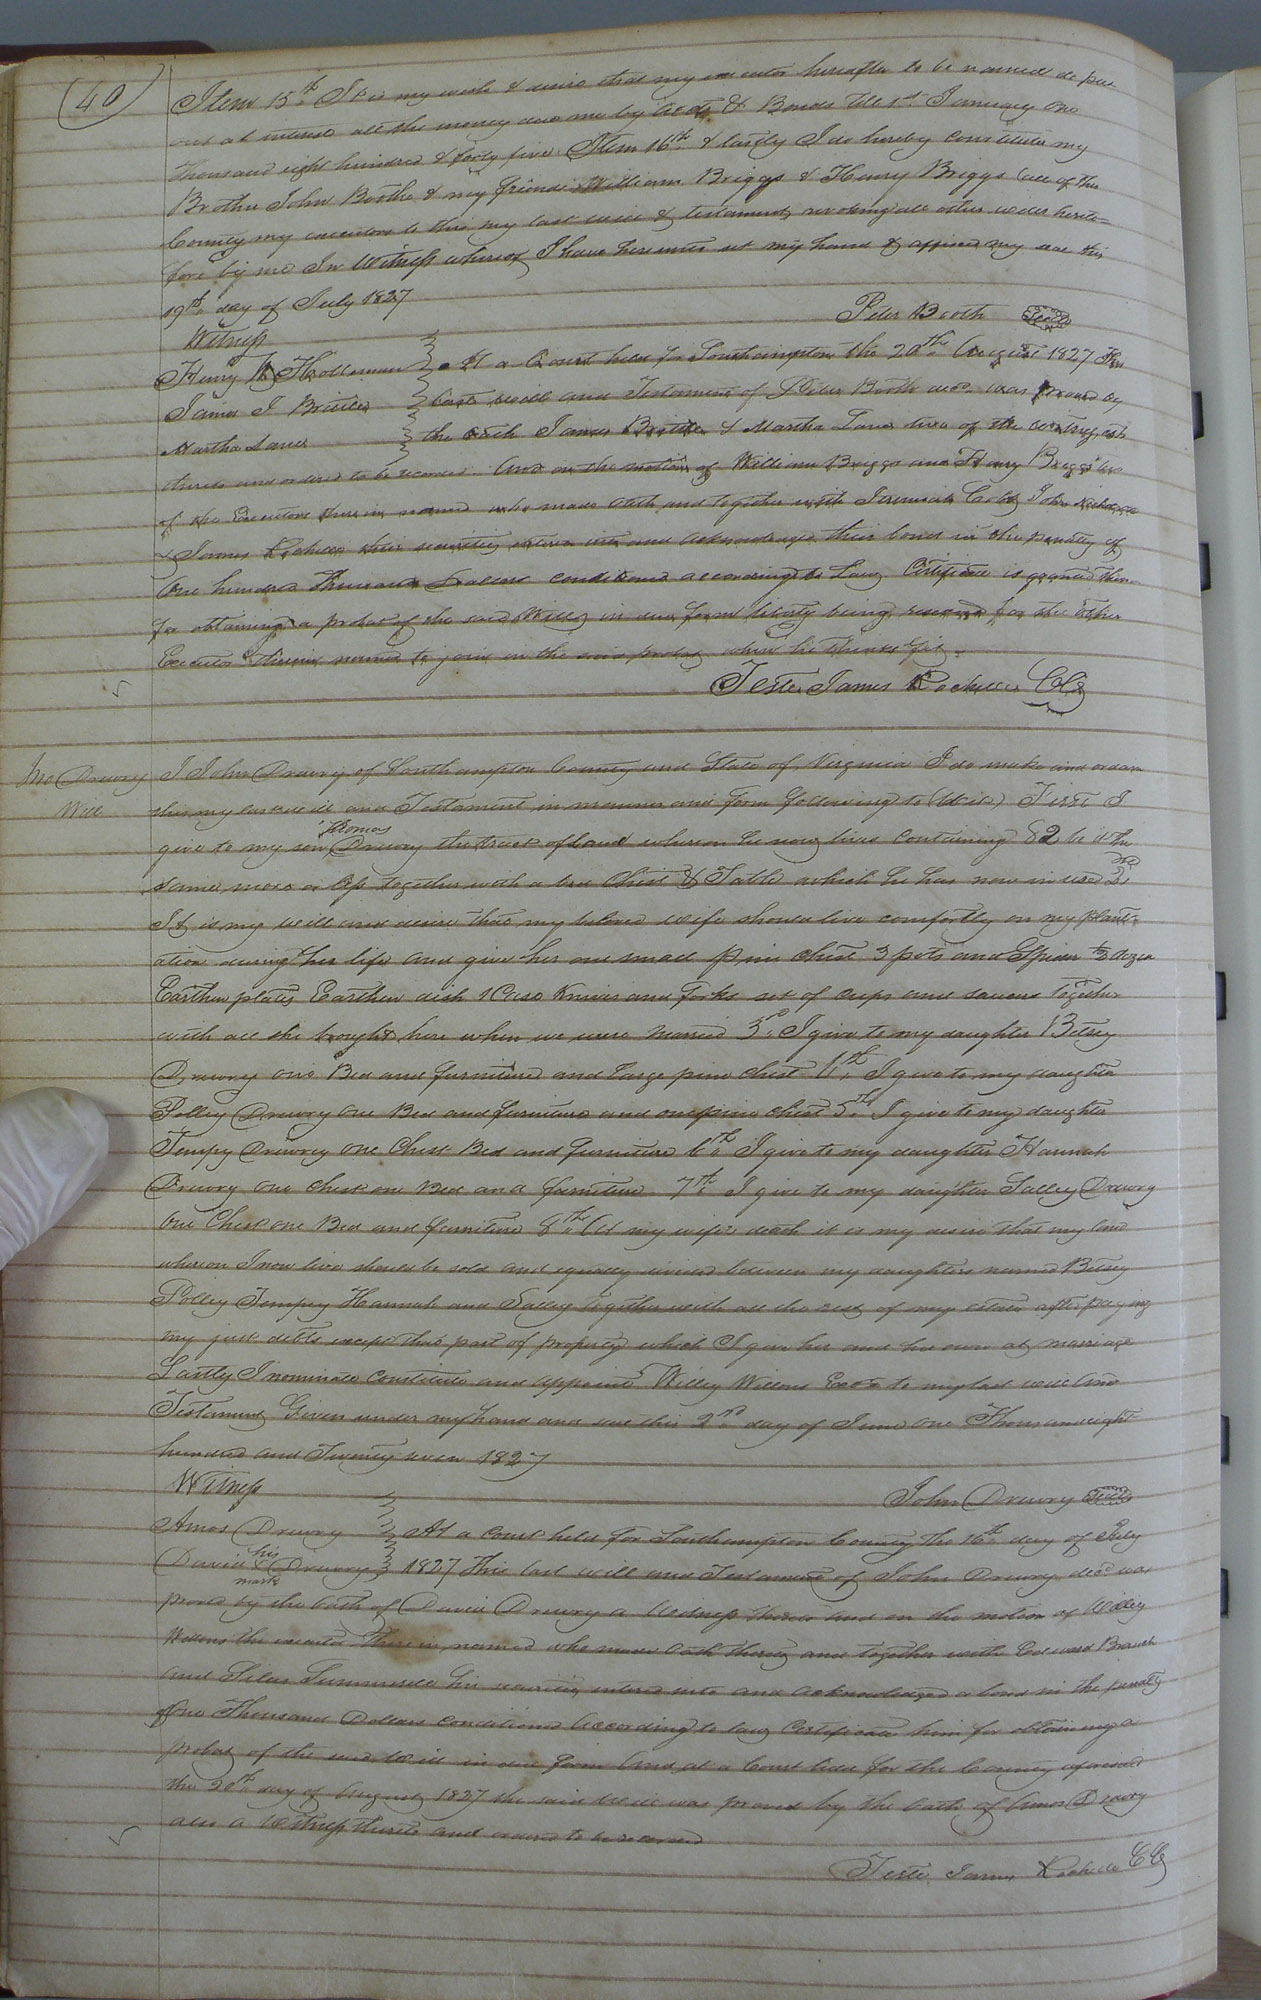 (40)
Item 15th It is my wish & desire that my executor hereafter to be named do put
out at interest all the money due me by accts & Bonds till 1st January one
thousand eight hundred & forty five. Item 16th & lastly I do hereby constitute my
Brother John Booth & my friends William Briggs & Henry Briggs (all of this
County my executors to this my last will & testament, revoking all other wills hereto=
fore by me In Witness whereof I have hereunto set my hand & affixed my seal this
19th day of July 1827
Peter Booth Seal
Witness
Henry Holleman
James J Bristle
Martha Lane
At a Court held for Southampton the 20th August 1827 This
last will and Testament of Peter Booth decd. was proved by
the oath James & Martha Lane two of the witnesses
thereto and ordered to be recorded. And on the motion of William Briggs and Henry Briggs two
of the Executors therein named who made oath and together with Jeremiah Cobb John
& James Rochelle their securities entered into and acknowledged their bond in the penalty of
One hundred Thousand Dollars conditioned according to Law, Certificate is granted them
for obtaining a probat of the said Will in due form liberty being reserved for the other
Executor therein named to join in the said probat when he thinks fit.
Teste James Rochelle CC
Jno Drewry
Will
I John Drewry of Southampton County and State of Virginia I do make and ordain
this my last will and Testament in manner and form following to (Wit) First I
give to my son Thomas Drewry the tract of land whereon he now lives containing 82 be it the
same more or less together with a bed Chest & Table which he has now in use 2nd
It is my will and desire that my beloved wife should live comfortly on my plant=
ation during her life and give her one small pine chest 3 pots and Spider ½ dozen
Earthen plates Earthen dish 1 Case Knives and forks set of cups and saucers together
with all she brought here when we were married 3rd I give to my daughter Betsey
Drewry one Bed and furniture and large pine chest 4th I give to my daughter
Polley Drewry one Bed and furniture and one pine chest 5th I give to my daughter
Tempy Drewry one Chest Bed and furniture 6th I give to my daughter Hannah
Drewry one chest one Bed and furniture 7th I give to my daughter Salley Drewry
one Chest one Bed and furniture 8th At my wifes death it is my desire that my land
whereon I now live should be sold and equally divided between my daughters named Betsey
Polley Tempey Hannah and Salley together with all the rest of my estate after paying
my just debts except that part of property which I give her and her own at marriage
Lastly I nominate constitute and appoint Willey Wellons Exor to my last will and
Testament Given under my hand and seal this 2nd day of June one Thousand eight
hundred and Twenty seven 1827
John Drewry Seal
Witness
Amos Drewry
David his x mark Drewry
At a court held for Southampton County the 16th day of July
1827 This last will and Testament of John Drewry decd was
proved by the Oath of David Drewry a Witness thereto and on the motion of Willey
Wellons the executor therein named who made Oath thereto and together with Edward Branch
and Silas Summerell his securities entered into and acknowledged a bond in the penalty
of One Thousand Dollars conditioned According to law Certificate him for obtaining a
probat of the said Will in due form And at a Court held for the County aforesaid
the 20th day of August 1827 the said Will was proved by the Oath of Amos Drewry
also a Witness thereto and ordered to be recorded
Teste James Rochelle CC